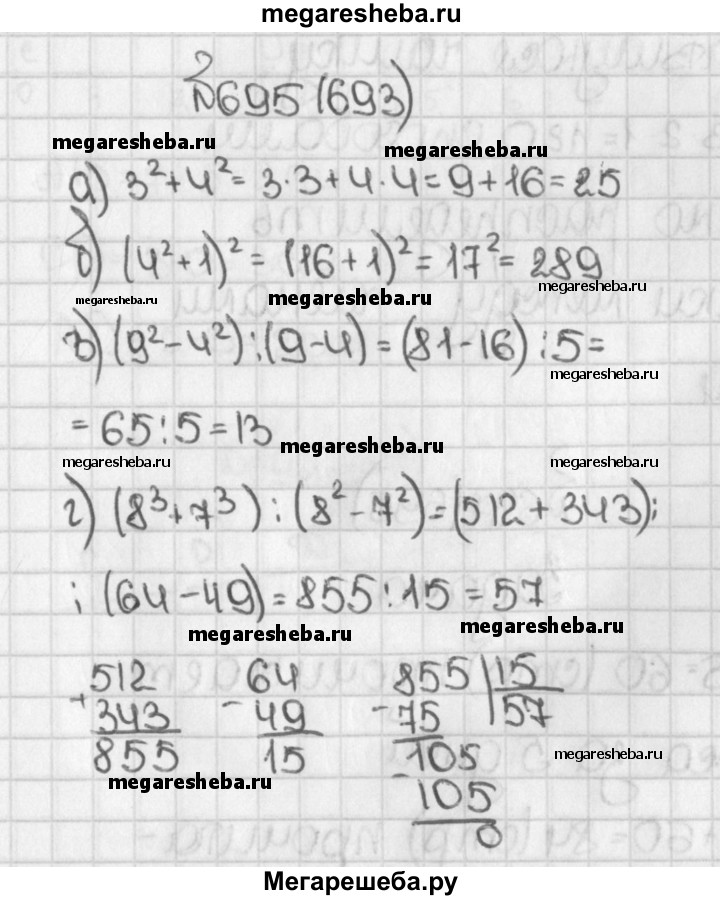 megaresheba.ru
№695 (693)
megaresheba.ru megaresheba.ru
а) 3²+4²= 3·3+4·4=9+16=25
б) (4²+1)² = (16+1)²=17²= 289
megaresheba.ru megaresheba.ru megaresheba.ru
в) (9²-4²):(9-4)=(81-16):5=
megaresheba.ru
=65:5=13
megaresheba.ru megaresheba.ru megaresheba.ru
г) (8³+7³):(8²-7²)=(512+343):
:(64-49)=855:15=57
megaresheba.ru megaresheba.ru
512 64 855|15
+343 -49 -75 |57
855 15 105
megaresheba.ru megaresheba.ru
-105
0
Мегарешеба.ру